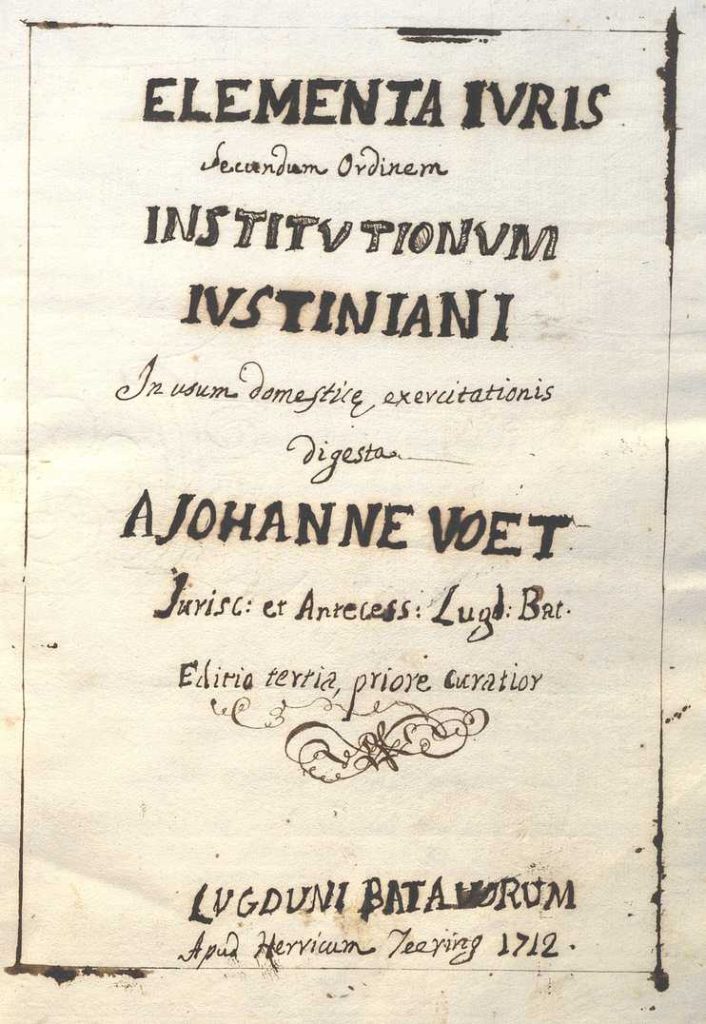 ELEMENTA IVRIS
Secundum Ordinem
INSTITVTIONVM
IVSTINIANI
In usum domesticę exercitationis
digesta
A JOHANNE VOET
Jurisc: et Antecess: Lugd: Bat.
Editio tertia, priore curatior
LVGDUNI BATAVORUM
Apud Henricum Teering 1712.